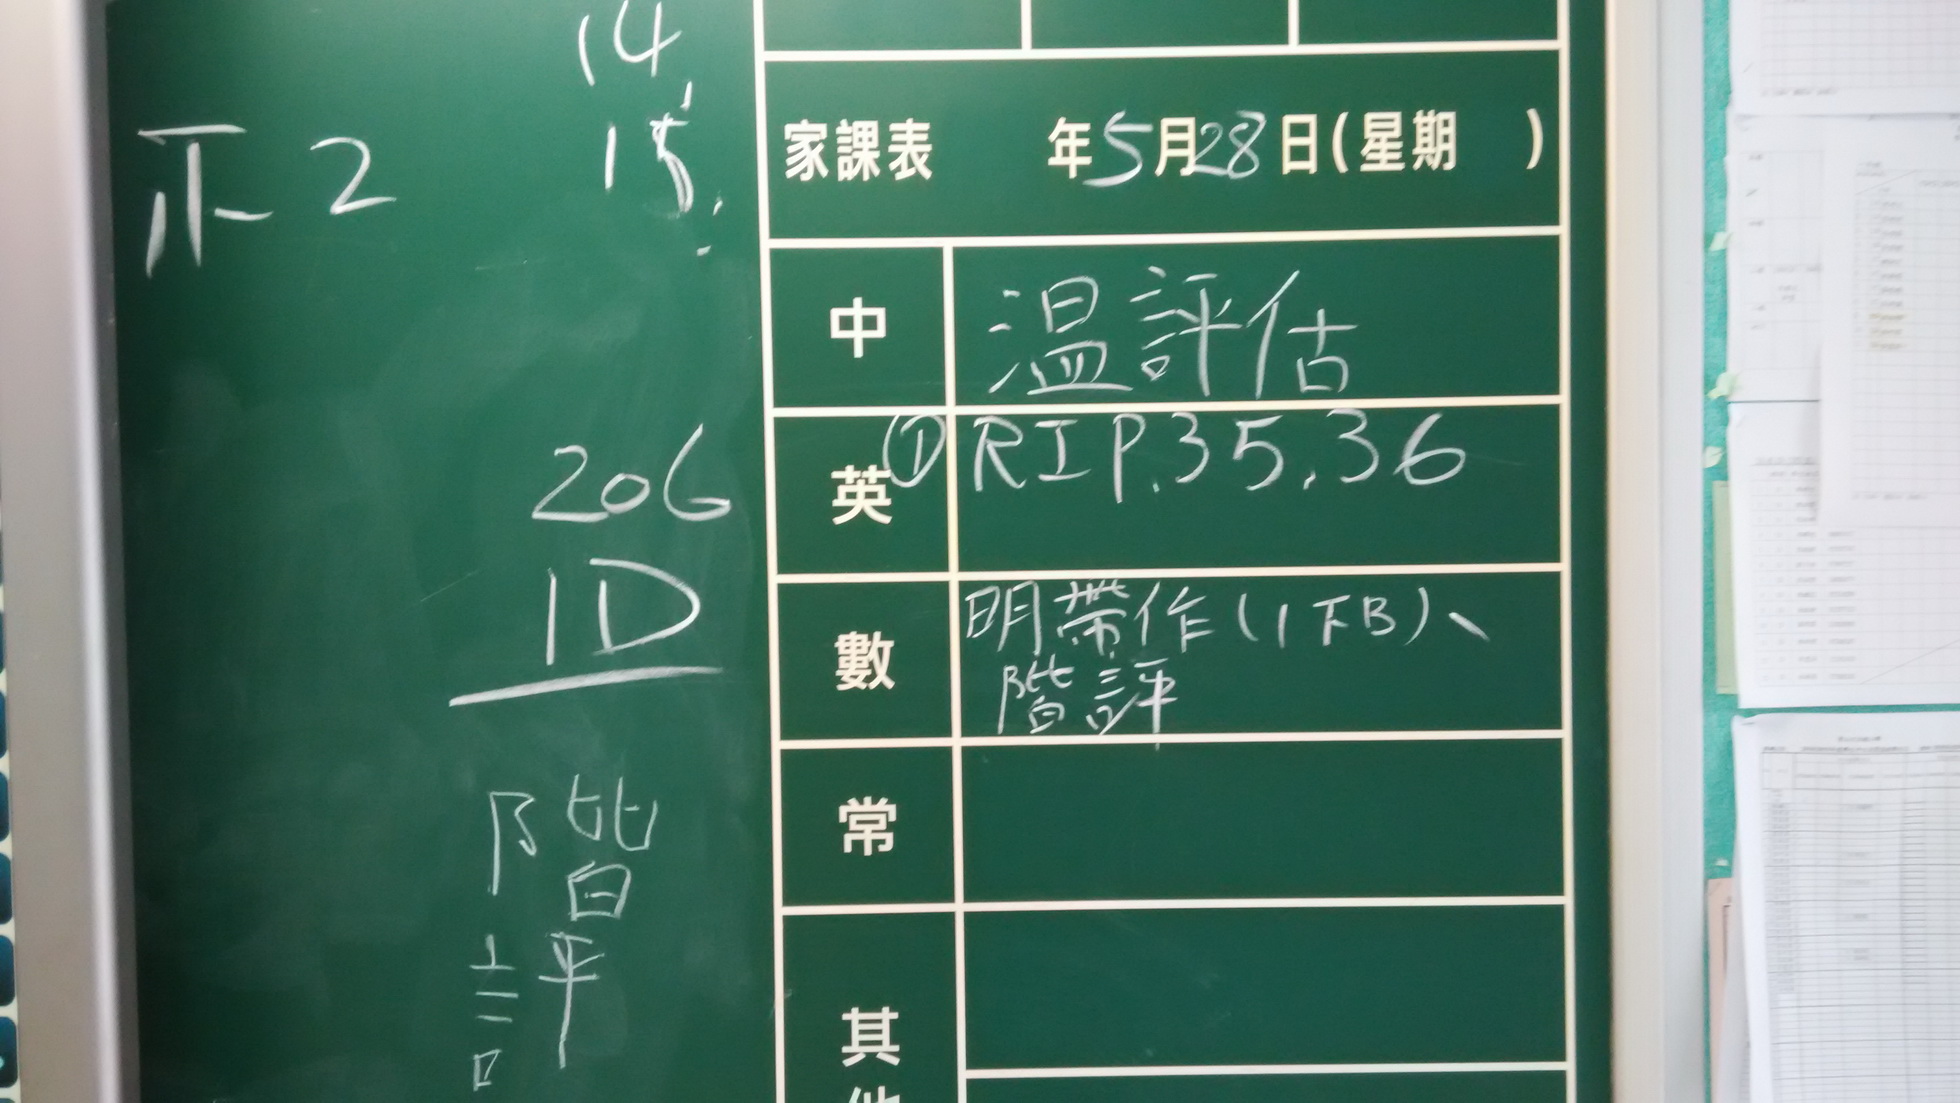 14
15
不 2
206
1D
階
評
家課表 年5月28日(星期 )
中 溫評估
英 ①RIP.35.36
數 明帶作(1下B)、
階評
常
其
他